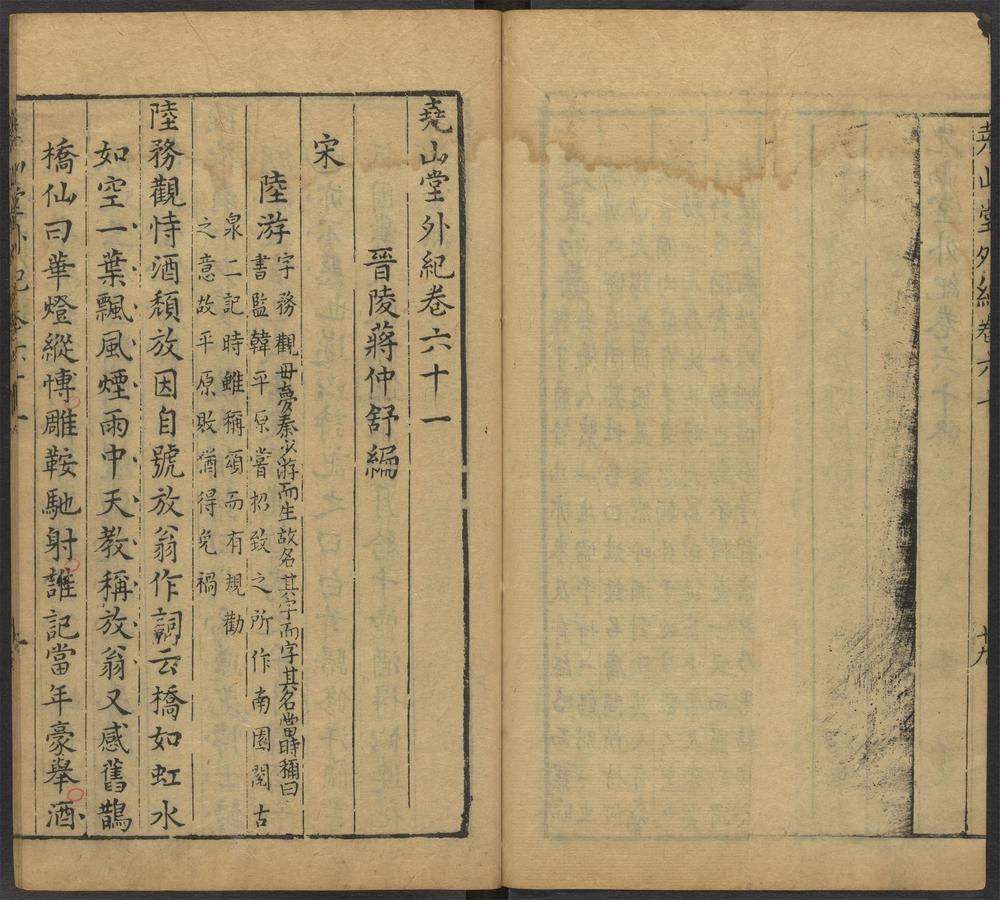 堯山堂外紀卷六十
十九
堯山堂外紀卷六十一
晉陵蔣仲舒編
宋
陸游
字務觀母夢秦少游而生故名其字而字其名當時稱曰
書監韓平原嘗招致之所作南園閱古
泉二記時雖稱頌而有規勸
之意故平原敗猶得免禍
陸務觀恃酒頹放因自號放翁作詞云橋如虹水
如空一葉飄風煙雨中天教稱放翁又感舊鵲
橋仙曰華燈縱愽雕鞍馳射誰記當年豪舉酒